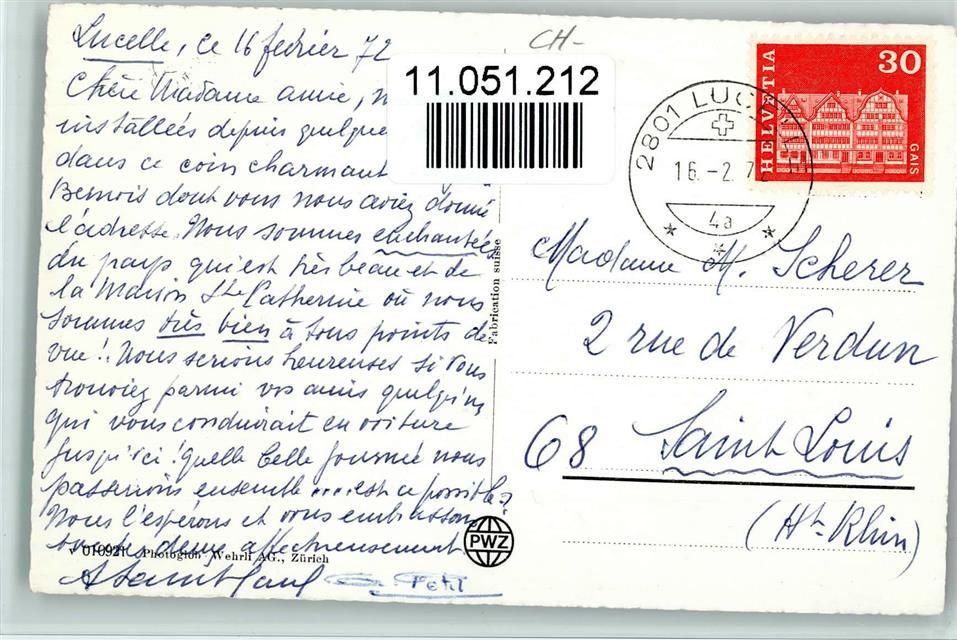 Lucelle, ce 16 fevrier 72
Chère Madame amie, n
installées depuis quelque
dans ce coin charmant
Bernois dont vous nous aviez donné
l'adresse. Nous sommes enchantées
du pays qui est très beau et de
la Maison Ste Catherine où nous
sommes très bien à tous points de
vue! Nous serions heureuses si vous
trouviez parmi vos amis quelqu'un
qui vous conduirait en voiture
jusqu'ici! quelle belle journée nous
passerions ensemble .... est ce possible?
Nous l'espérons et vous embrassons
toutes deux affectueusement.
010921 Photoglob-Wehrli AG., Zürich
Petit
Fabrication suisse
PWZ
CH-
11.051.212
2801 LUCELLE
16.-2.72
4a
HELVETIA
30
GAIS
Madame M. Scherer
2 rue de Verdun
68 Saint Louis
(Ht-Rhin)